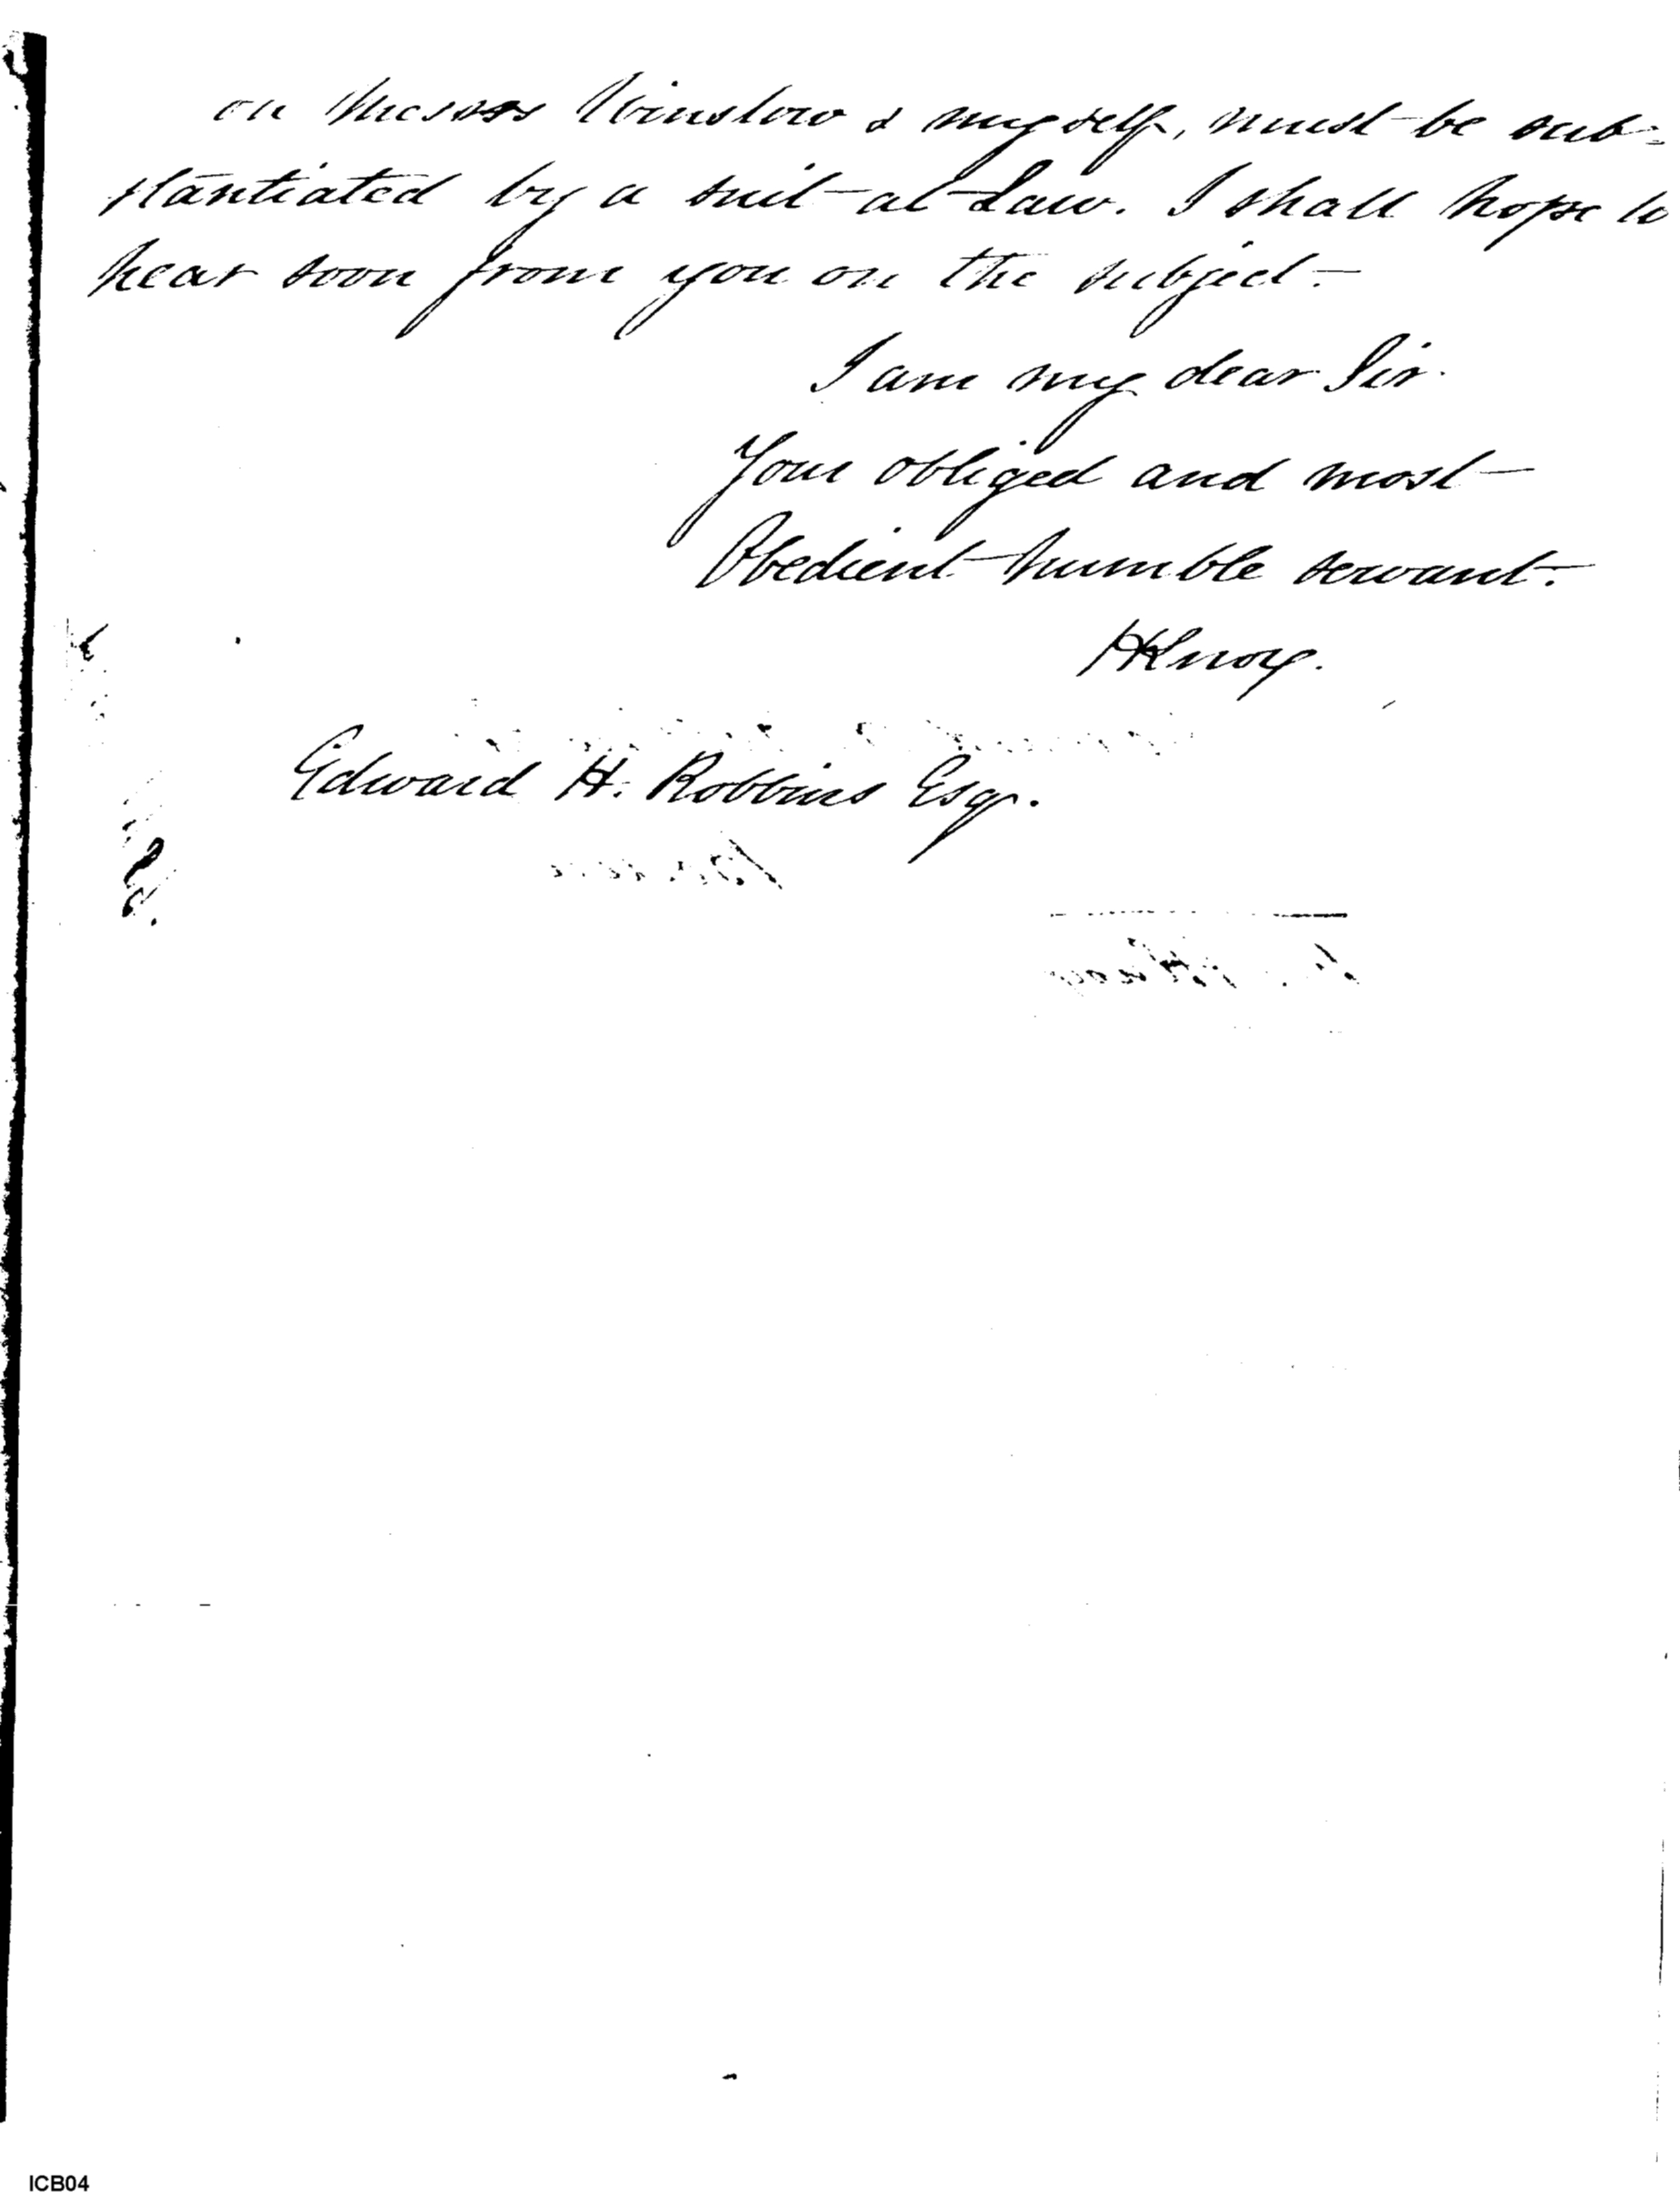 on Messrs Winslow & myself, must be sub=
stantiated by a suit at Law. I shall hope to
hear soon from you on the subject.
I am my dear Sir.
Your obliged and most
Obedient humble servant.
HKnox.
Edward H. Robbins Esqr.
ICB04